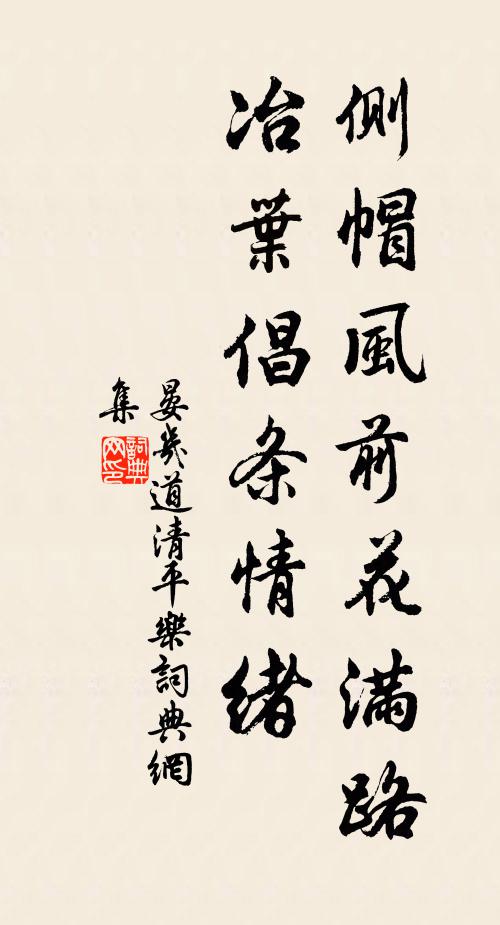 側帽風前花滿路
冶葉倡条情緒
晏幾道清平樂詞典網
集
詞典
网印